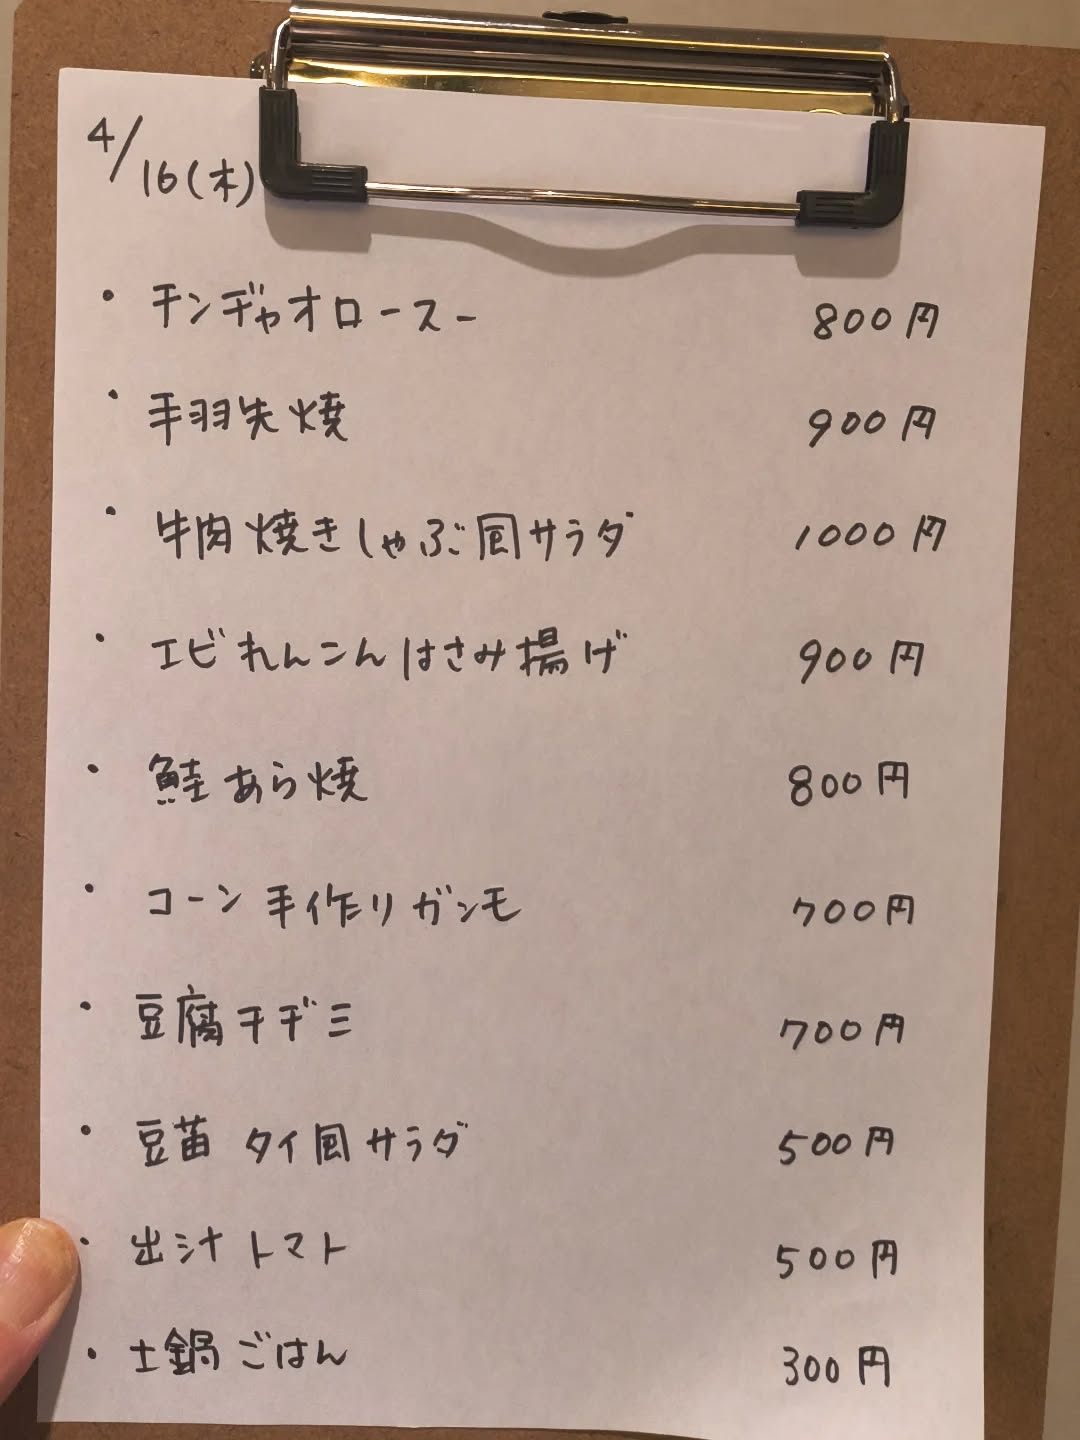 4/16(木)
・チンヂャオロースー 800円
・手羽先焼 900円
・牛肉焼きしゃぶ風サラダ 1000円
・エビれんこんはさみ揚げ 900円
・鮭あら焼 800円
・コーン手作りガンモ 700円
・豆腐チヂミ 700円
・豆苗 タイ風サラダ 500円
・出汁トマト 500円
・土鍋ごはん 300円